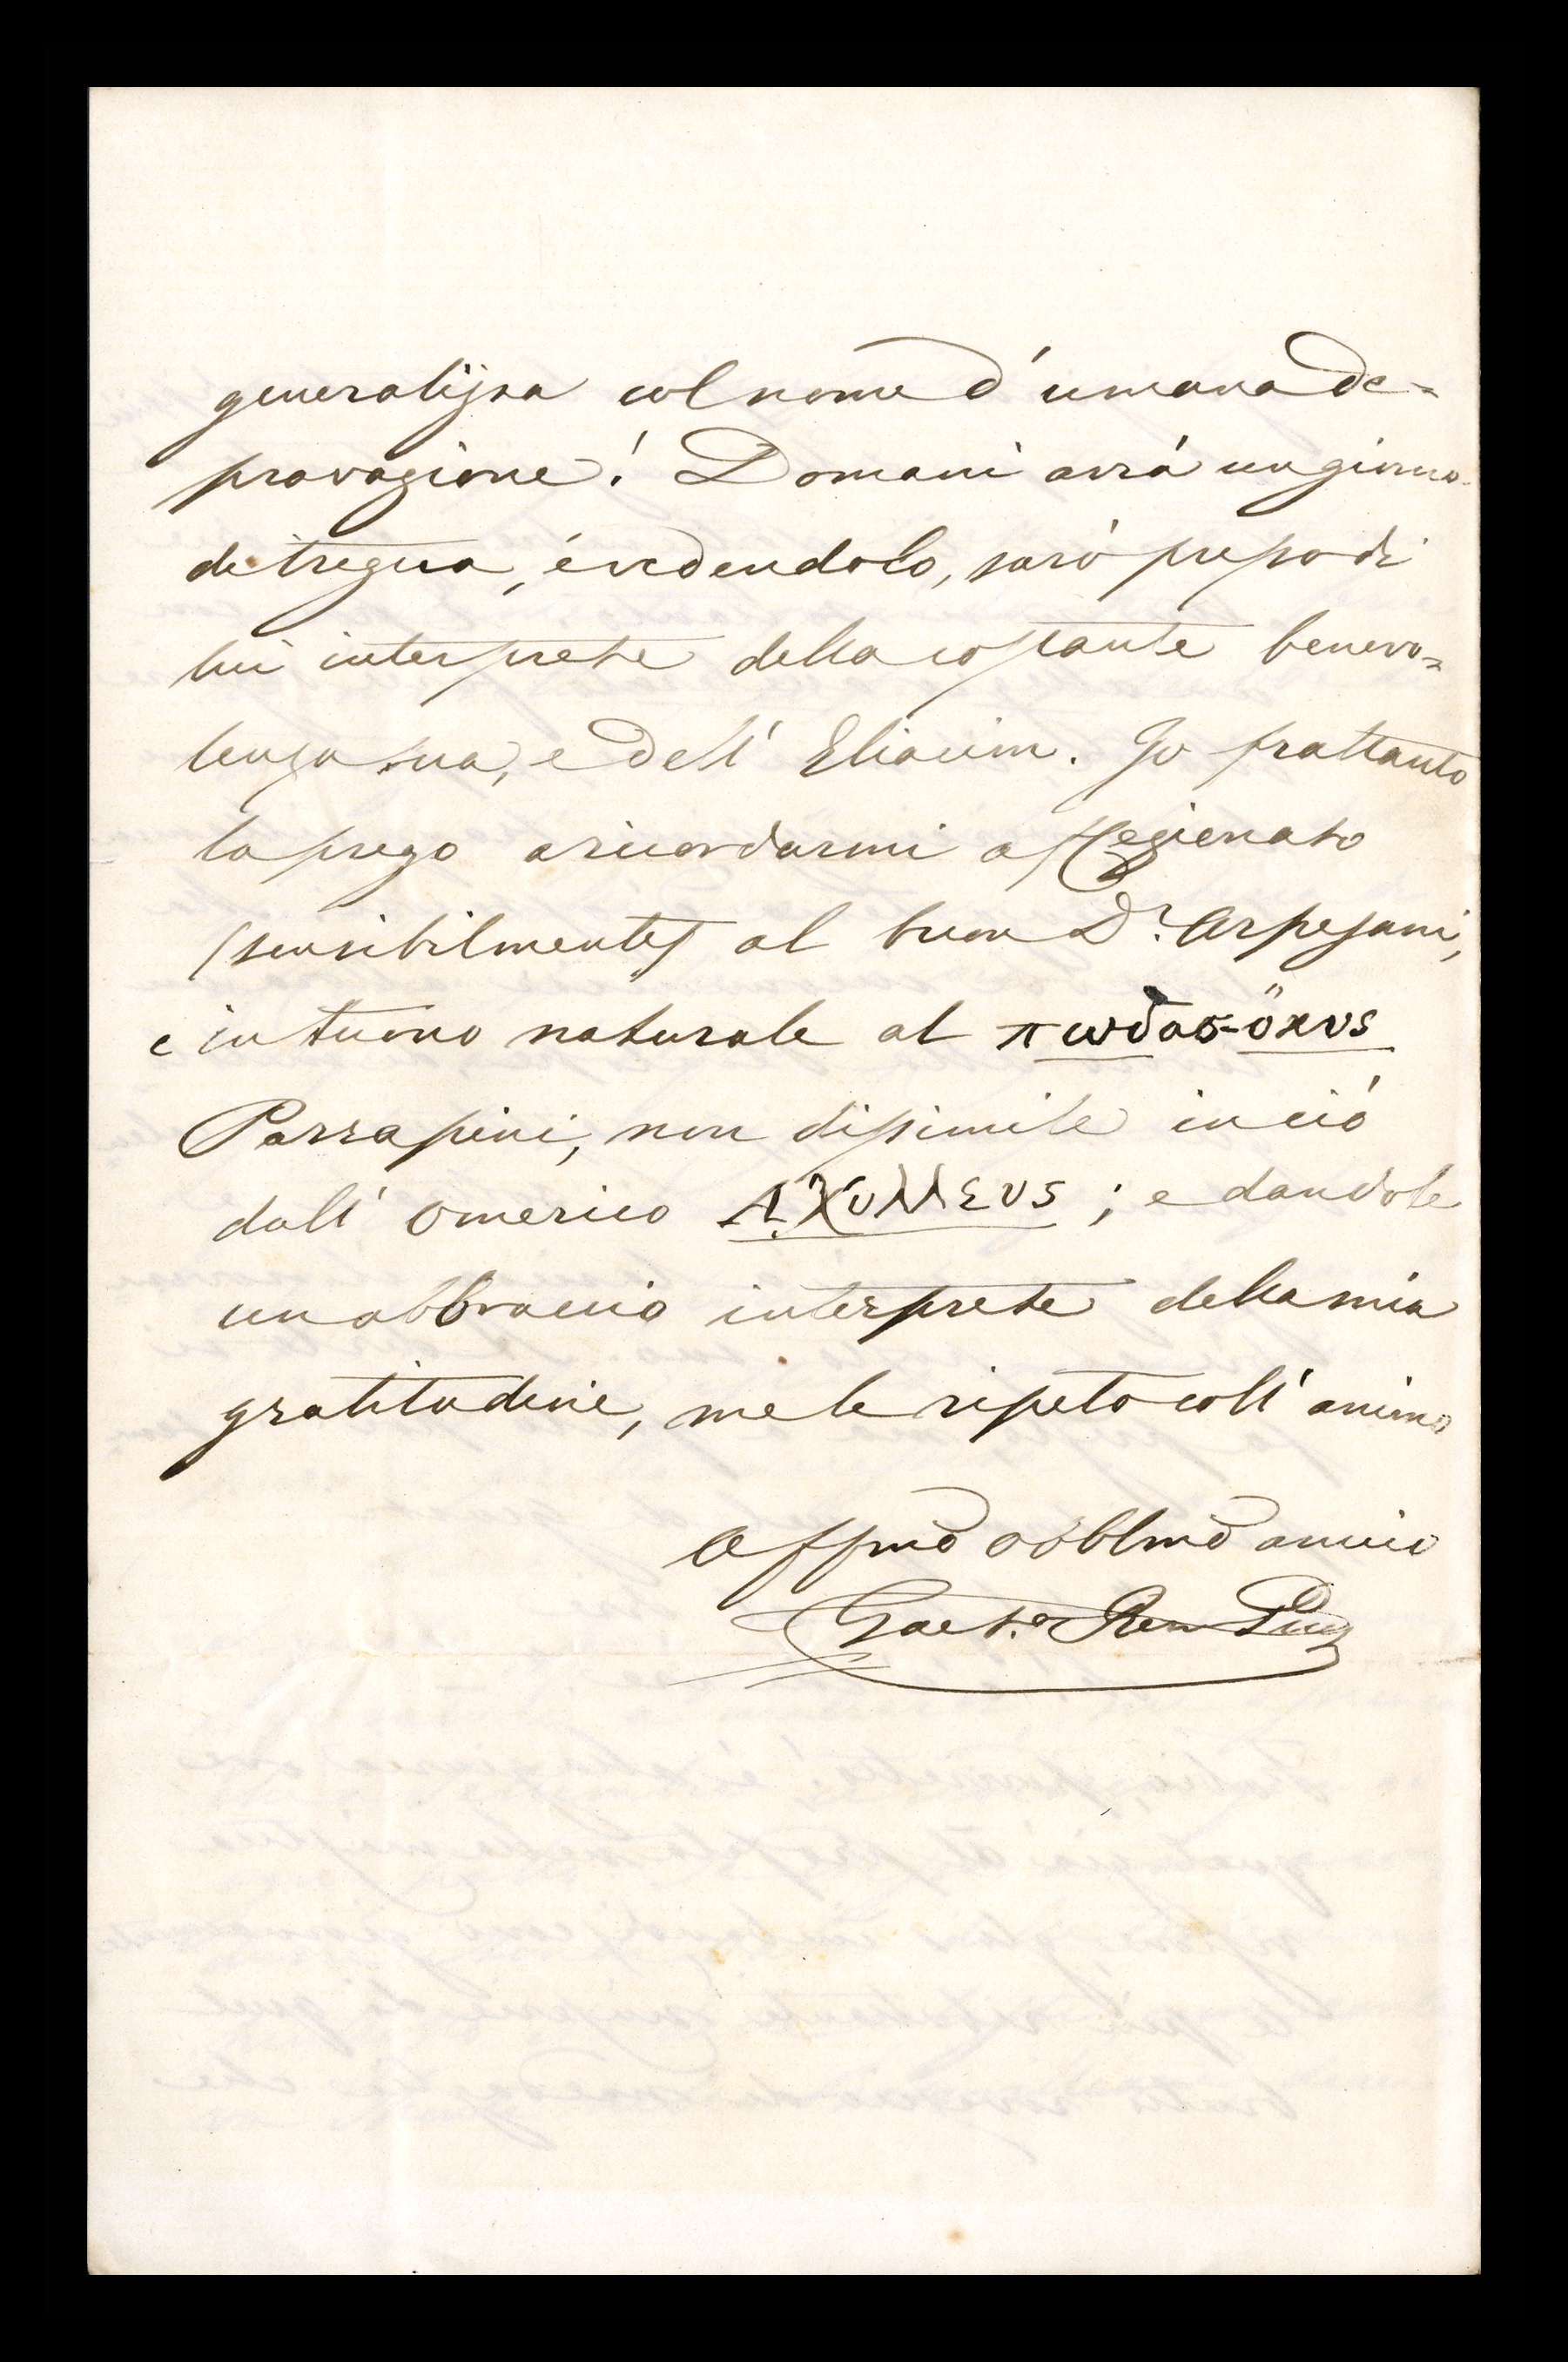 generalizza col nome d'umana de=
pravazione! Domani avrà un giorno
di tregua, e vedendolo, sarò presso di
lui interprete della costante benevo=
lenza sua, e dell' Eliacim. Io frattanto
la prego a ricordarmi
(sensibilmente) al buon D.r Arpesani,
e in tuono naturale al πωδασ-öκυs
Parrasini, non dissimile in ciò
dall' Omerico Αχυλλευs ; e dandole
un abbraccio interprete della mia
gratitudine, me le ripeto coll' animo
Affmo obblmo amico
Gaet.o